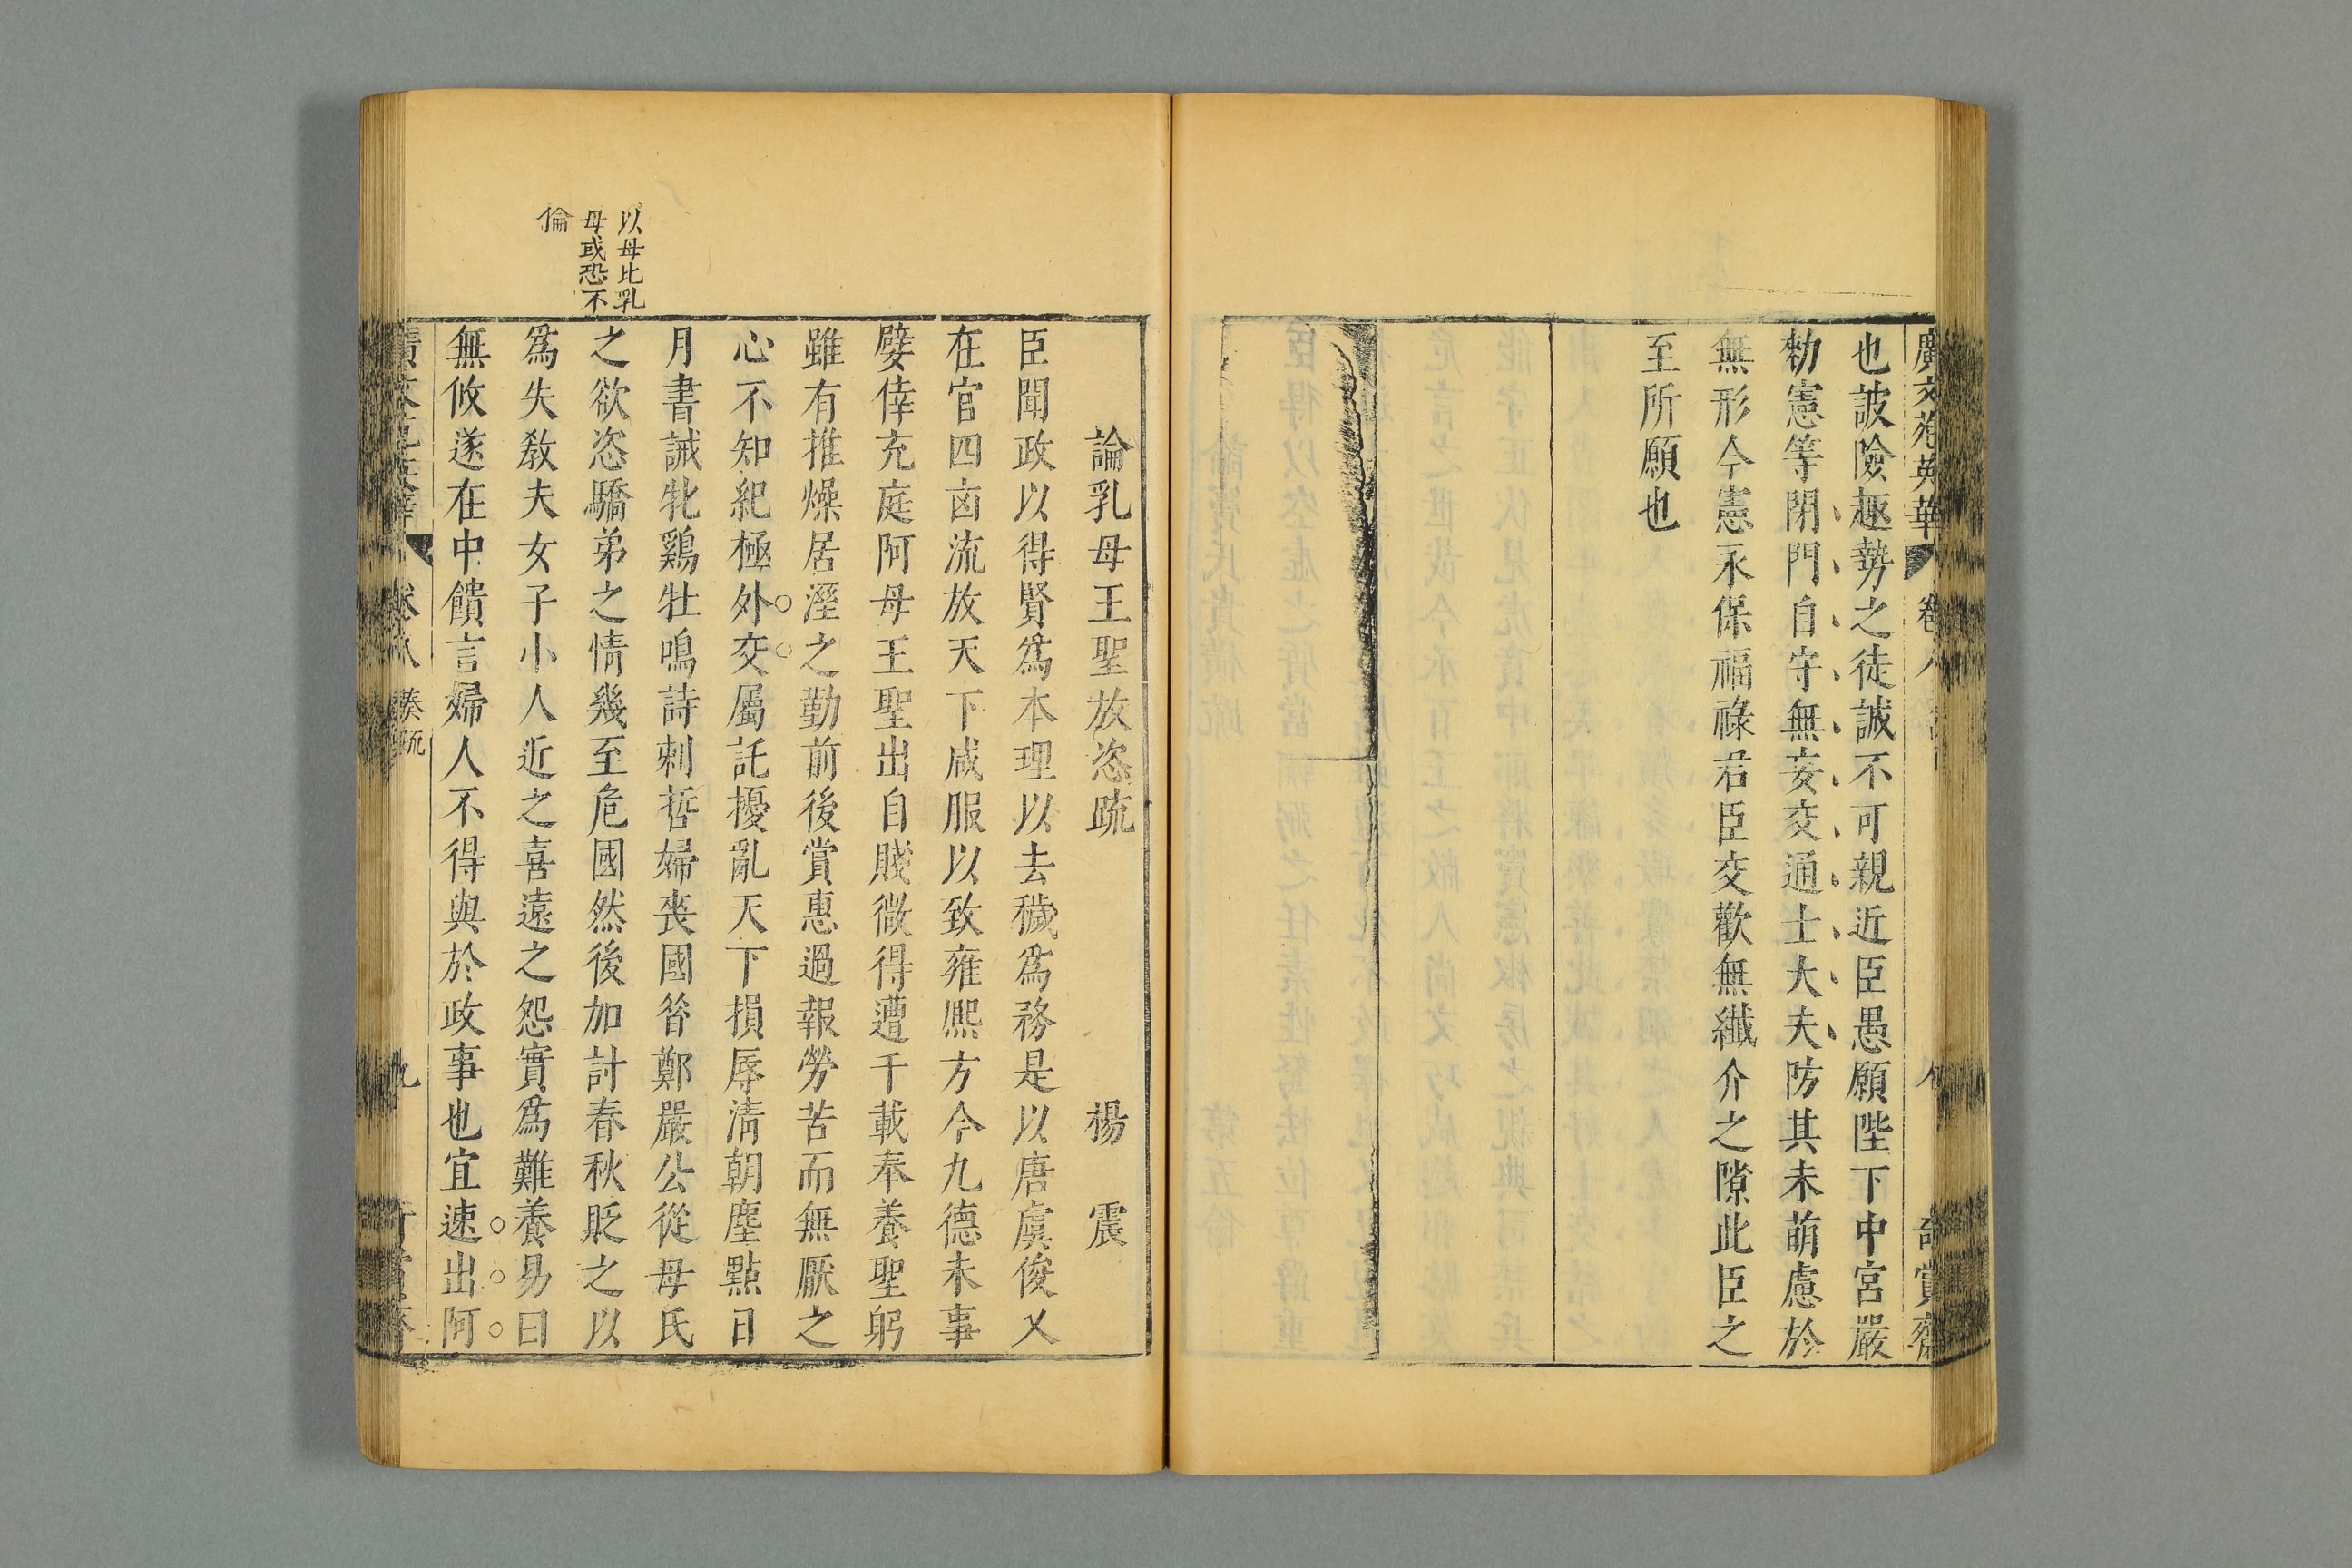 廣文苑英華 卷八 八 奇賞齋
也詖險趣勢之徒誠不可親近臣愚願陛下中宮嚴
勑憲等閉門自守無妄交通士大夫防其未萌慮於
無形令憲永保福祿君臣交歡無纖介之隙此臣之
至所願也
論乳母王聖放恣疏 楊震
臣聞政以得賢爲本理以去穢爲務是以唐虞俊乂
在官四凶流放天下咸服以致雍熙方今九德未事
嬖倖充庭阿母王聖出自賤微得遭千載奉養聖躬
雖有推燥居溼之勤前後賞惠過報勞苦而無厭之
心不知紀極外交屬託擾亂天下損辱淸朝塵點日
月書誡牝鷄牡鳴詩刺哲婦喪國昝鄭嚴公從母氏
之欲恣驕弟之情幾至危國然後加討春秋貶之以
以母比乳
母或恐不
倫
爲失敎夫女子小人近之喜遠之怨實爲難養易曰
無攸遂在中饋言婦人不得與於政事也宜速出阿
卷八 奏疏 九